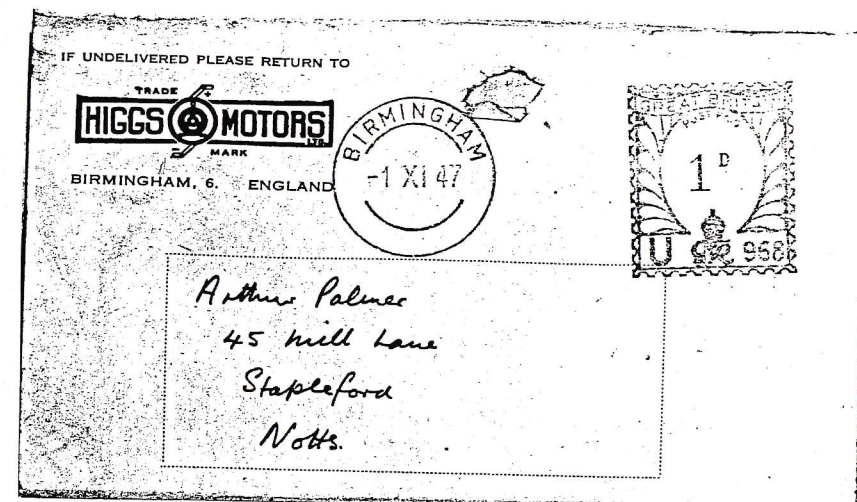 IF UNDELIVERED PLEASE RETURN TO
TRADE
HIGGS MOTORS LTD
MARK
BIRMINGHAM, 6. ENGLAND
BIRMINGHAM
-1 XI 47
GREAT BRITAIN
1D
U GR 968
Arthur Palmer
45 Mill Lane
Stapleford
Notts.